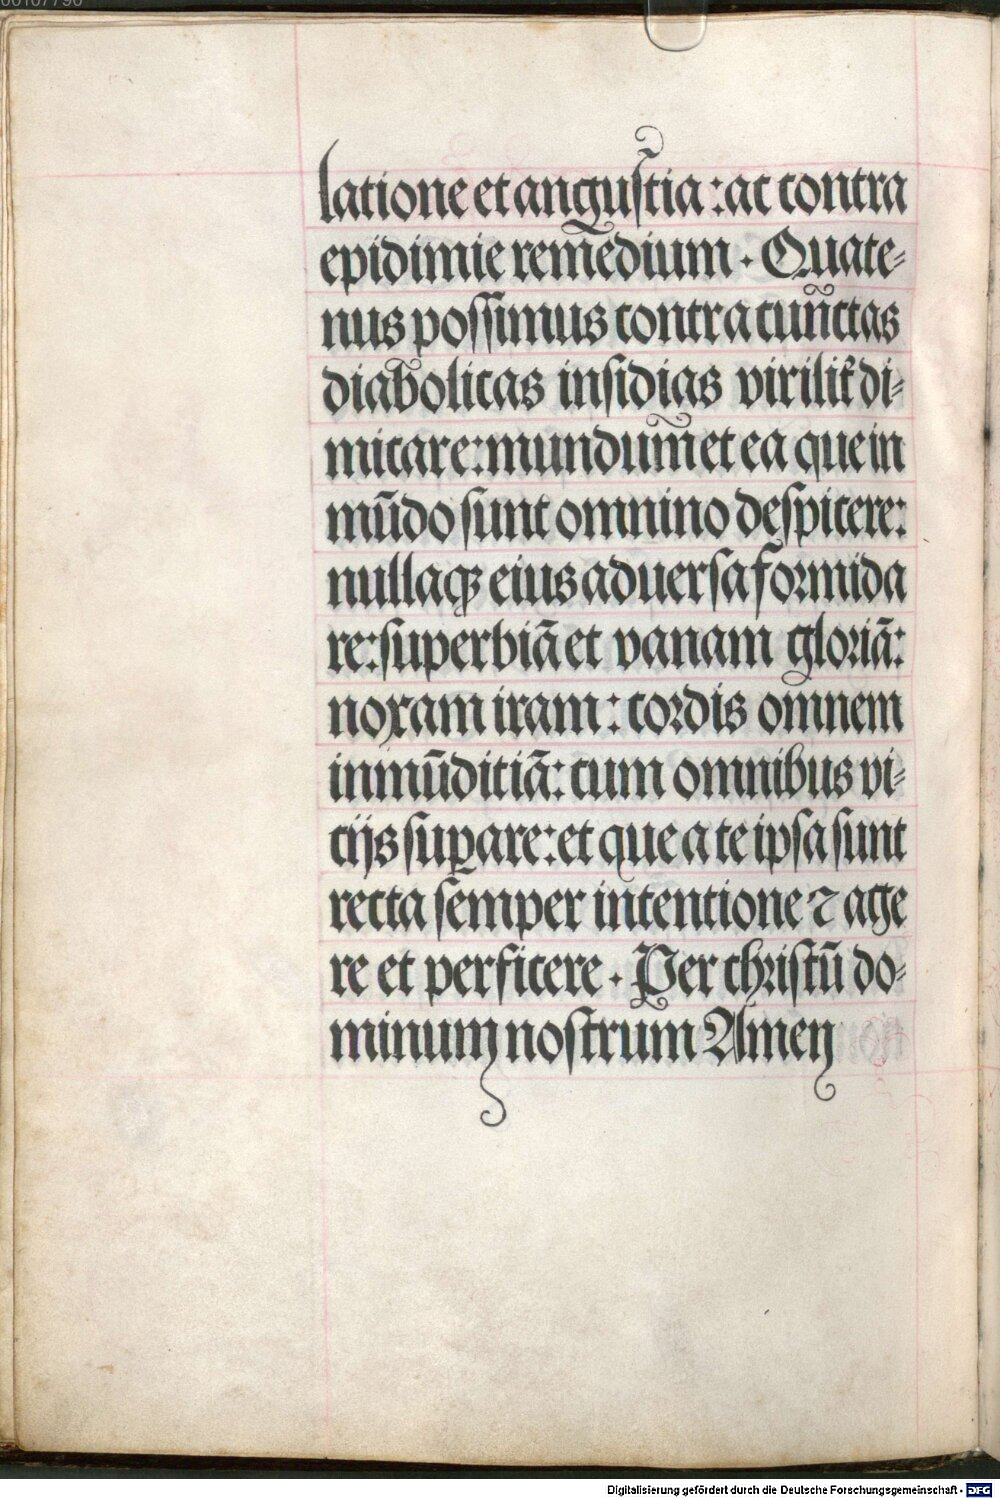 latione et angustia: ac contra
epidimie remedium. Quate-
nus possimus contra cunctas
diabolicas insidias virilit̃ di-
micare: mundum et ea que in
mūdo sunt omnino despicere:
nullaqꝫ eius aduersa formida
re: superbiā et vanam gloriā:
noxam iram: cordis omnem
inmūditiā: cum omnibus vi-
cijs suꝑare: et que a te ipsa sunt
recta semper intentione ⁊ age
re et perficere. Per christū do-
minum nostrum Amen
Digitalisierung gefördert durch die Deutsche Forschungsgemeinschaft - DFG